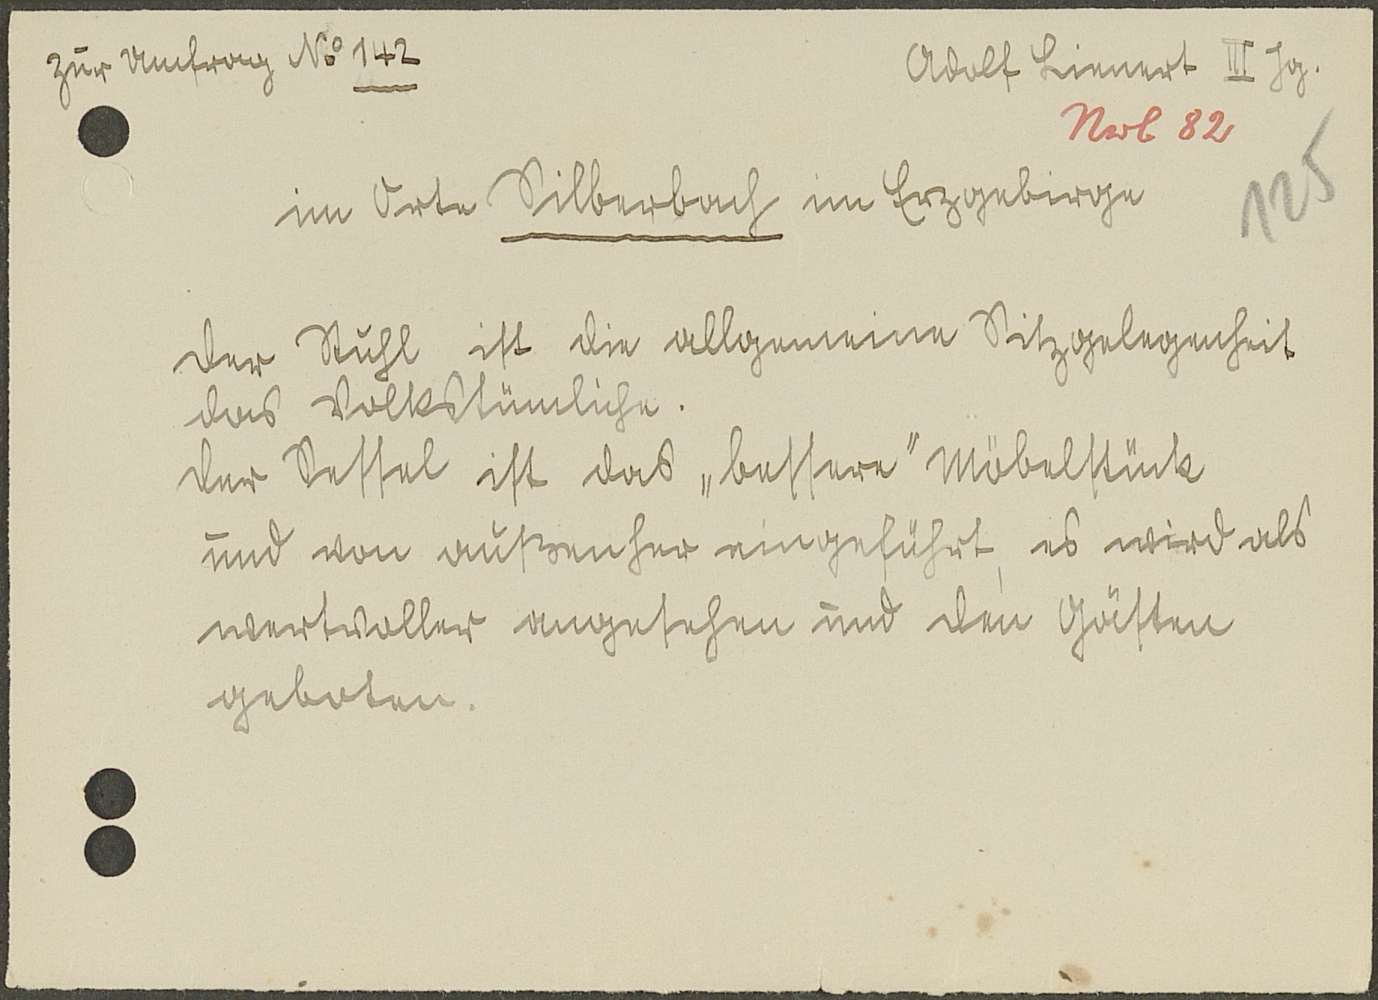 zur Umfrag No 142
Adolf Lienert III Jg.
Nwb 82
125
im Orte Silberbach im Erzgebirge
der Stuhl ist die allgemeine Sitzgelegenheit
das Volkstümliche.
der Sessel ist das „bessere" Möbelstück
und von außenher eingeführt, es wird als
wertvoller angesehen und den Gästen
geboten.